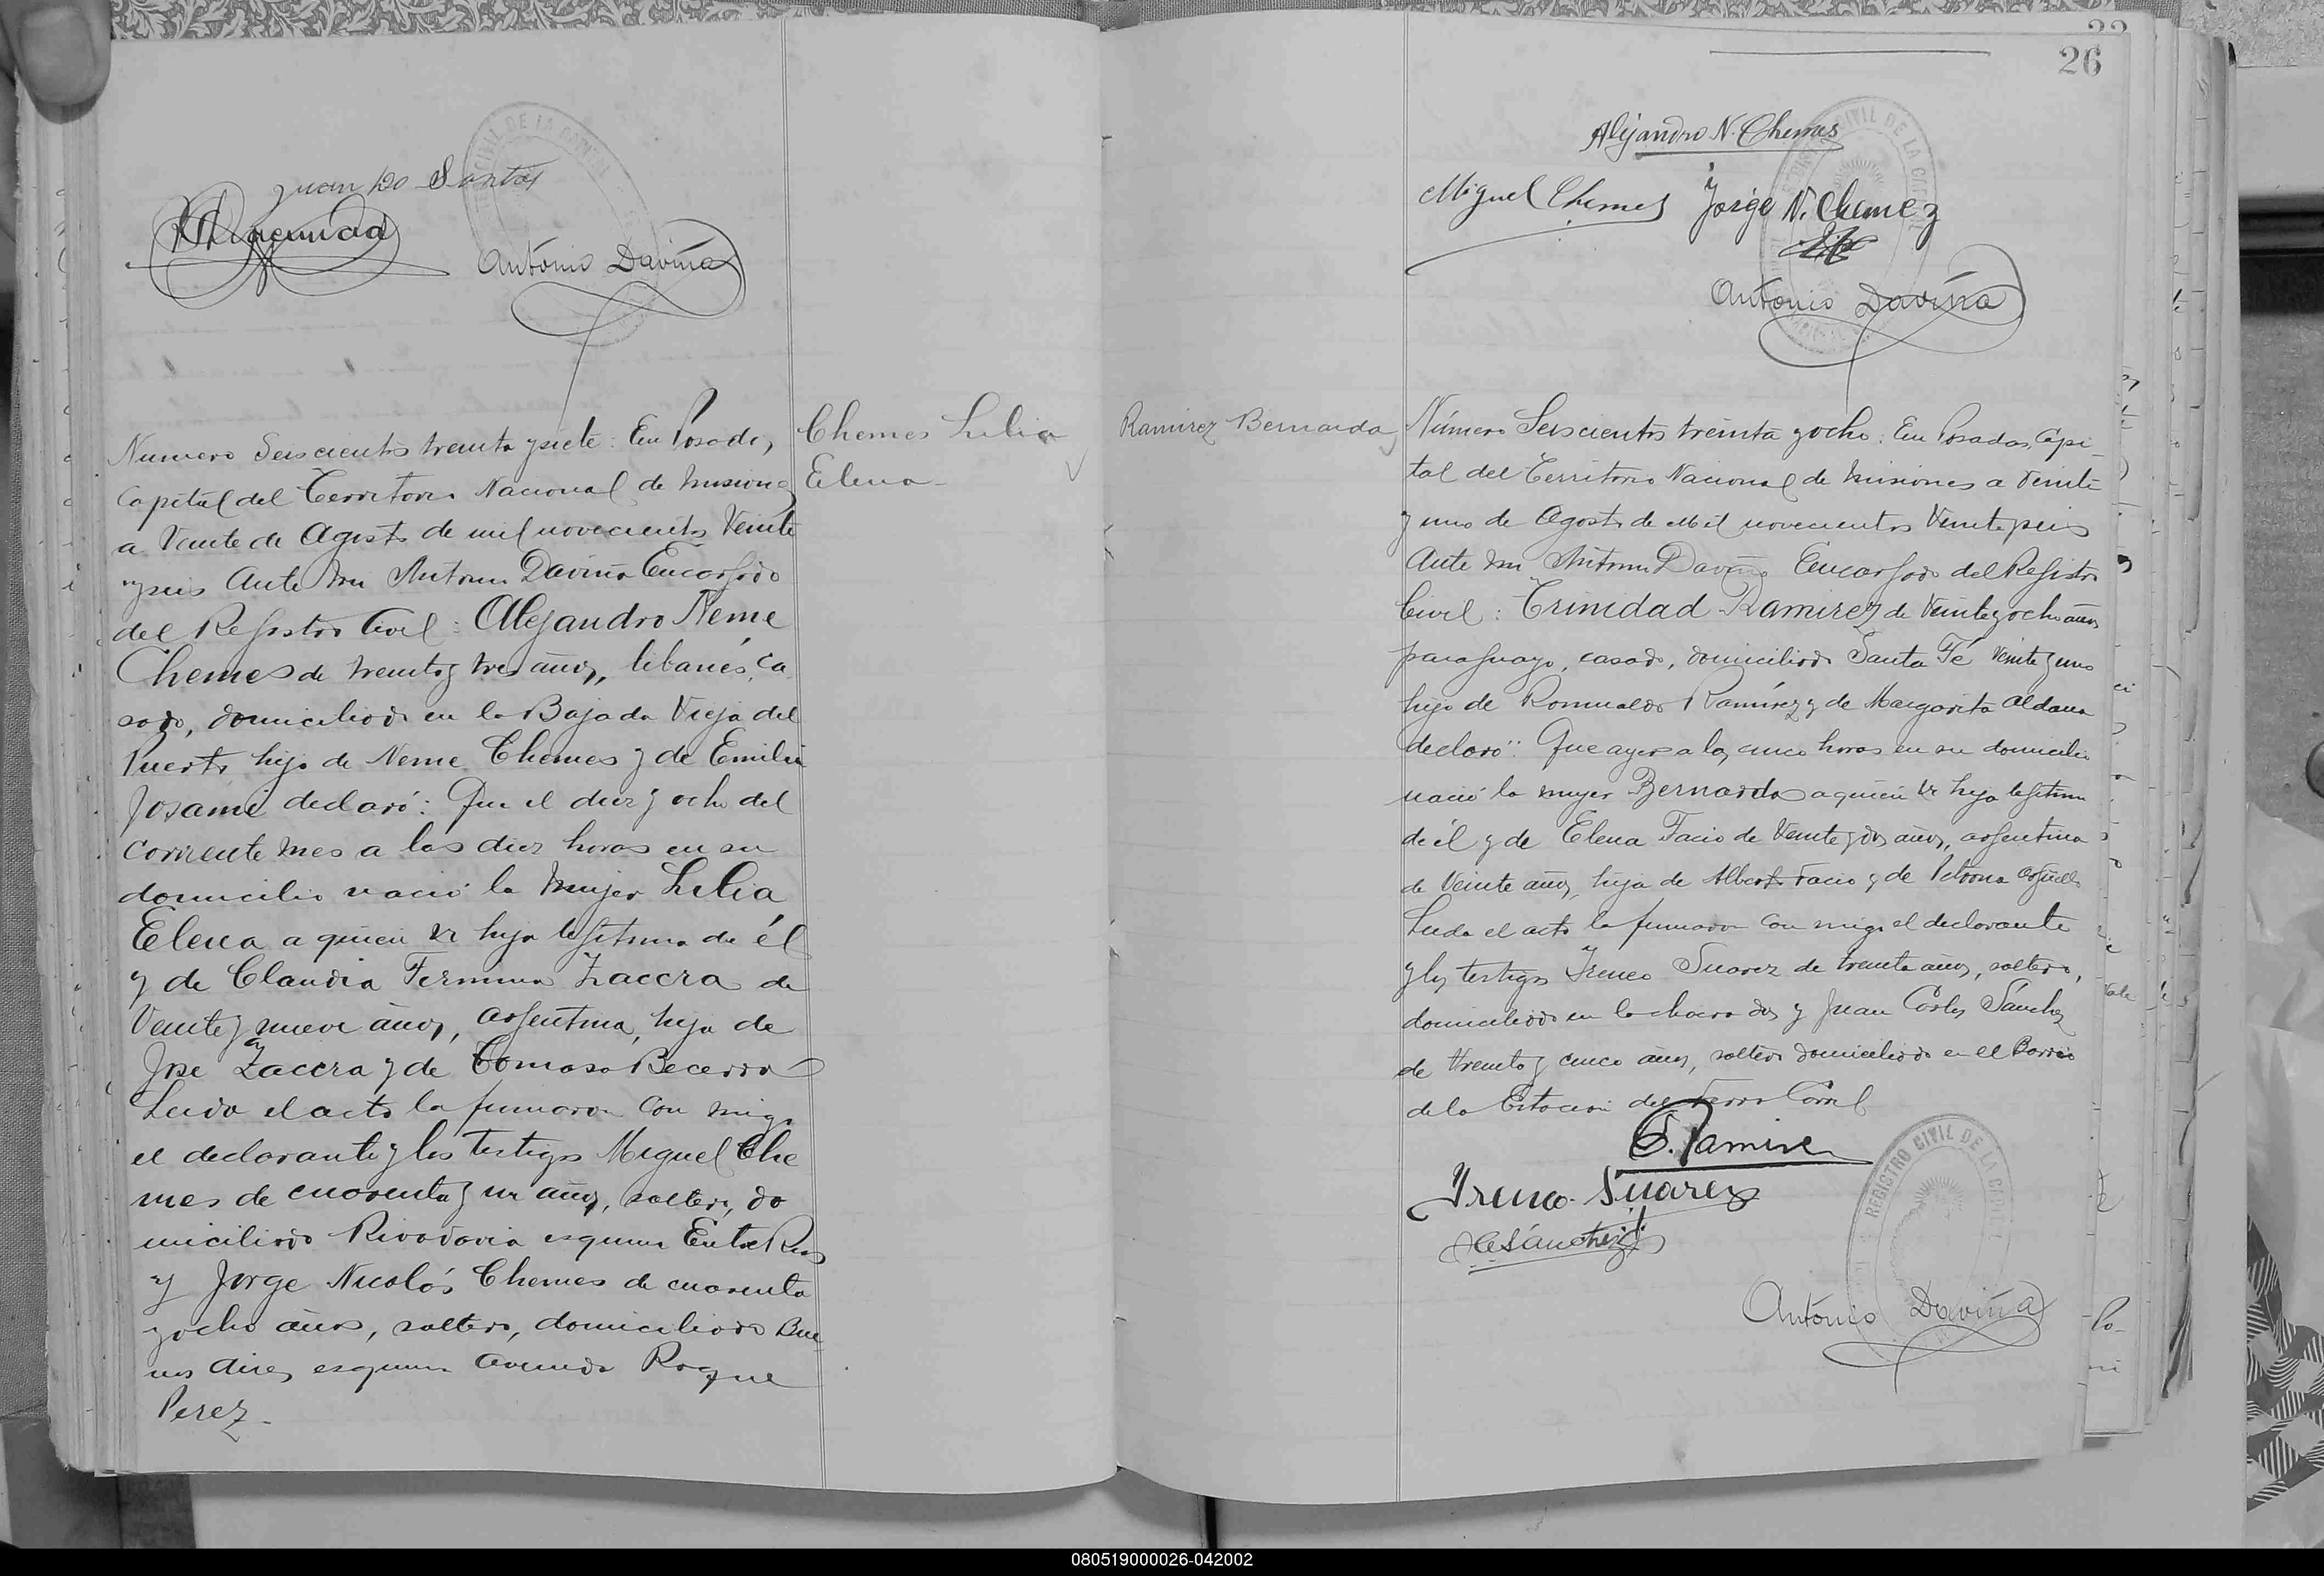 Juan B Santos
Antonio Daviña
Número Seiscientos treinta y siete: En Posadas,
Capital del Territorio Nacional de Misiones
a Veinte de Agosto de mil novecientos Veinte
y seis Ante mi Antonio Daviña Encargado
del Registro Civil: Alejandro Neme
Chemes de treinta y tres años, libanés, ca
sado, domiciliado en la Bajada Vieja del
Puerto, hijo de Neme Chemes y de Emilia
Josami declaró: Que el diez y ocho del
corriente mes a las diez horas en su
domicilio nació la mujer Lilia
Elena a quien es hija legítima de él
y de Claudia Fermina Zaccra de
Veinte y nueve años, argentina, hija de
Jose Zaccra y de Tomasa Becerra
Leida el acta la firmaron con migo
el declarante y los testigos Miguel Che
mes de cuarenta y un años, soltero, do
miciliado Rivadavia esquina Entre Rios
y Jorge Nicolás Chemes de cuarenta
y ocho años, soltero, domiciliado Bue
nos Aires esquina Avenida Roque
Perez.
Chemes Lilia
Elena
22
26
Alejandro N. Chemes
Miguel Chemes Jorge N. Chemez
Antonio Daviña
Ramirez Bernarda
Número Seiscientos treinta y ocho: En Posadas, Capi-
tal del Territorio Nacional de Misiones a Veinte
y uno de Agosto de Mil novecientos Veinte y seis
Ante mi Antonio Daviña Encargado del Registro
Civil: Trinidad Ramirez de Veinte y ocho años
paraguayo, casado, domiciliado Santa Fé Veinte y uno
hijo de Romualdo Ramírez y de Margarita Aldana
declaró: Que ayer a las cinco horas en su domicilio
nació la mujer Bernarda a quien es hija legitima
de él y de Elena Facio de Veinte y dos años, argentina
de Veinte años, hija de Alberto Facio y de Petrona Argüello
Leida el acta la firmaron con migo el declarante
y los testigos Ireneo Suarez de treinta años, soltero,
domiciliado en la chacra dos y Juan Carlos Sánchez
de treinta y cinco años, soltero domiciliado en el Barrio
de la Estacion del Ferro Carril
T. Ramirez
Ireneo Suarez
JCSánchez
REGISTRO CIVIL DE LA CAPITAL
Antonio Daviña
080519000026-042002